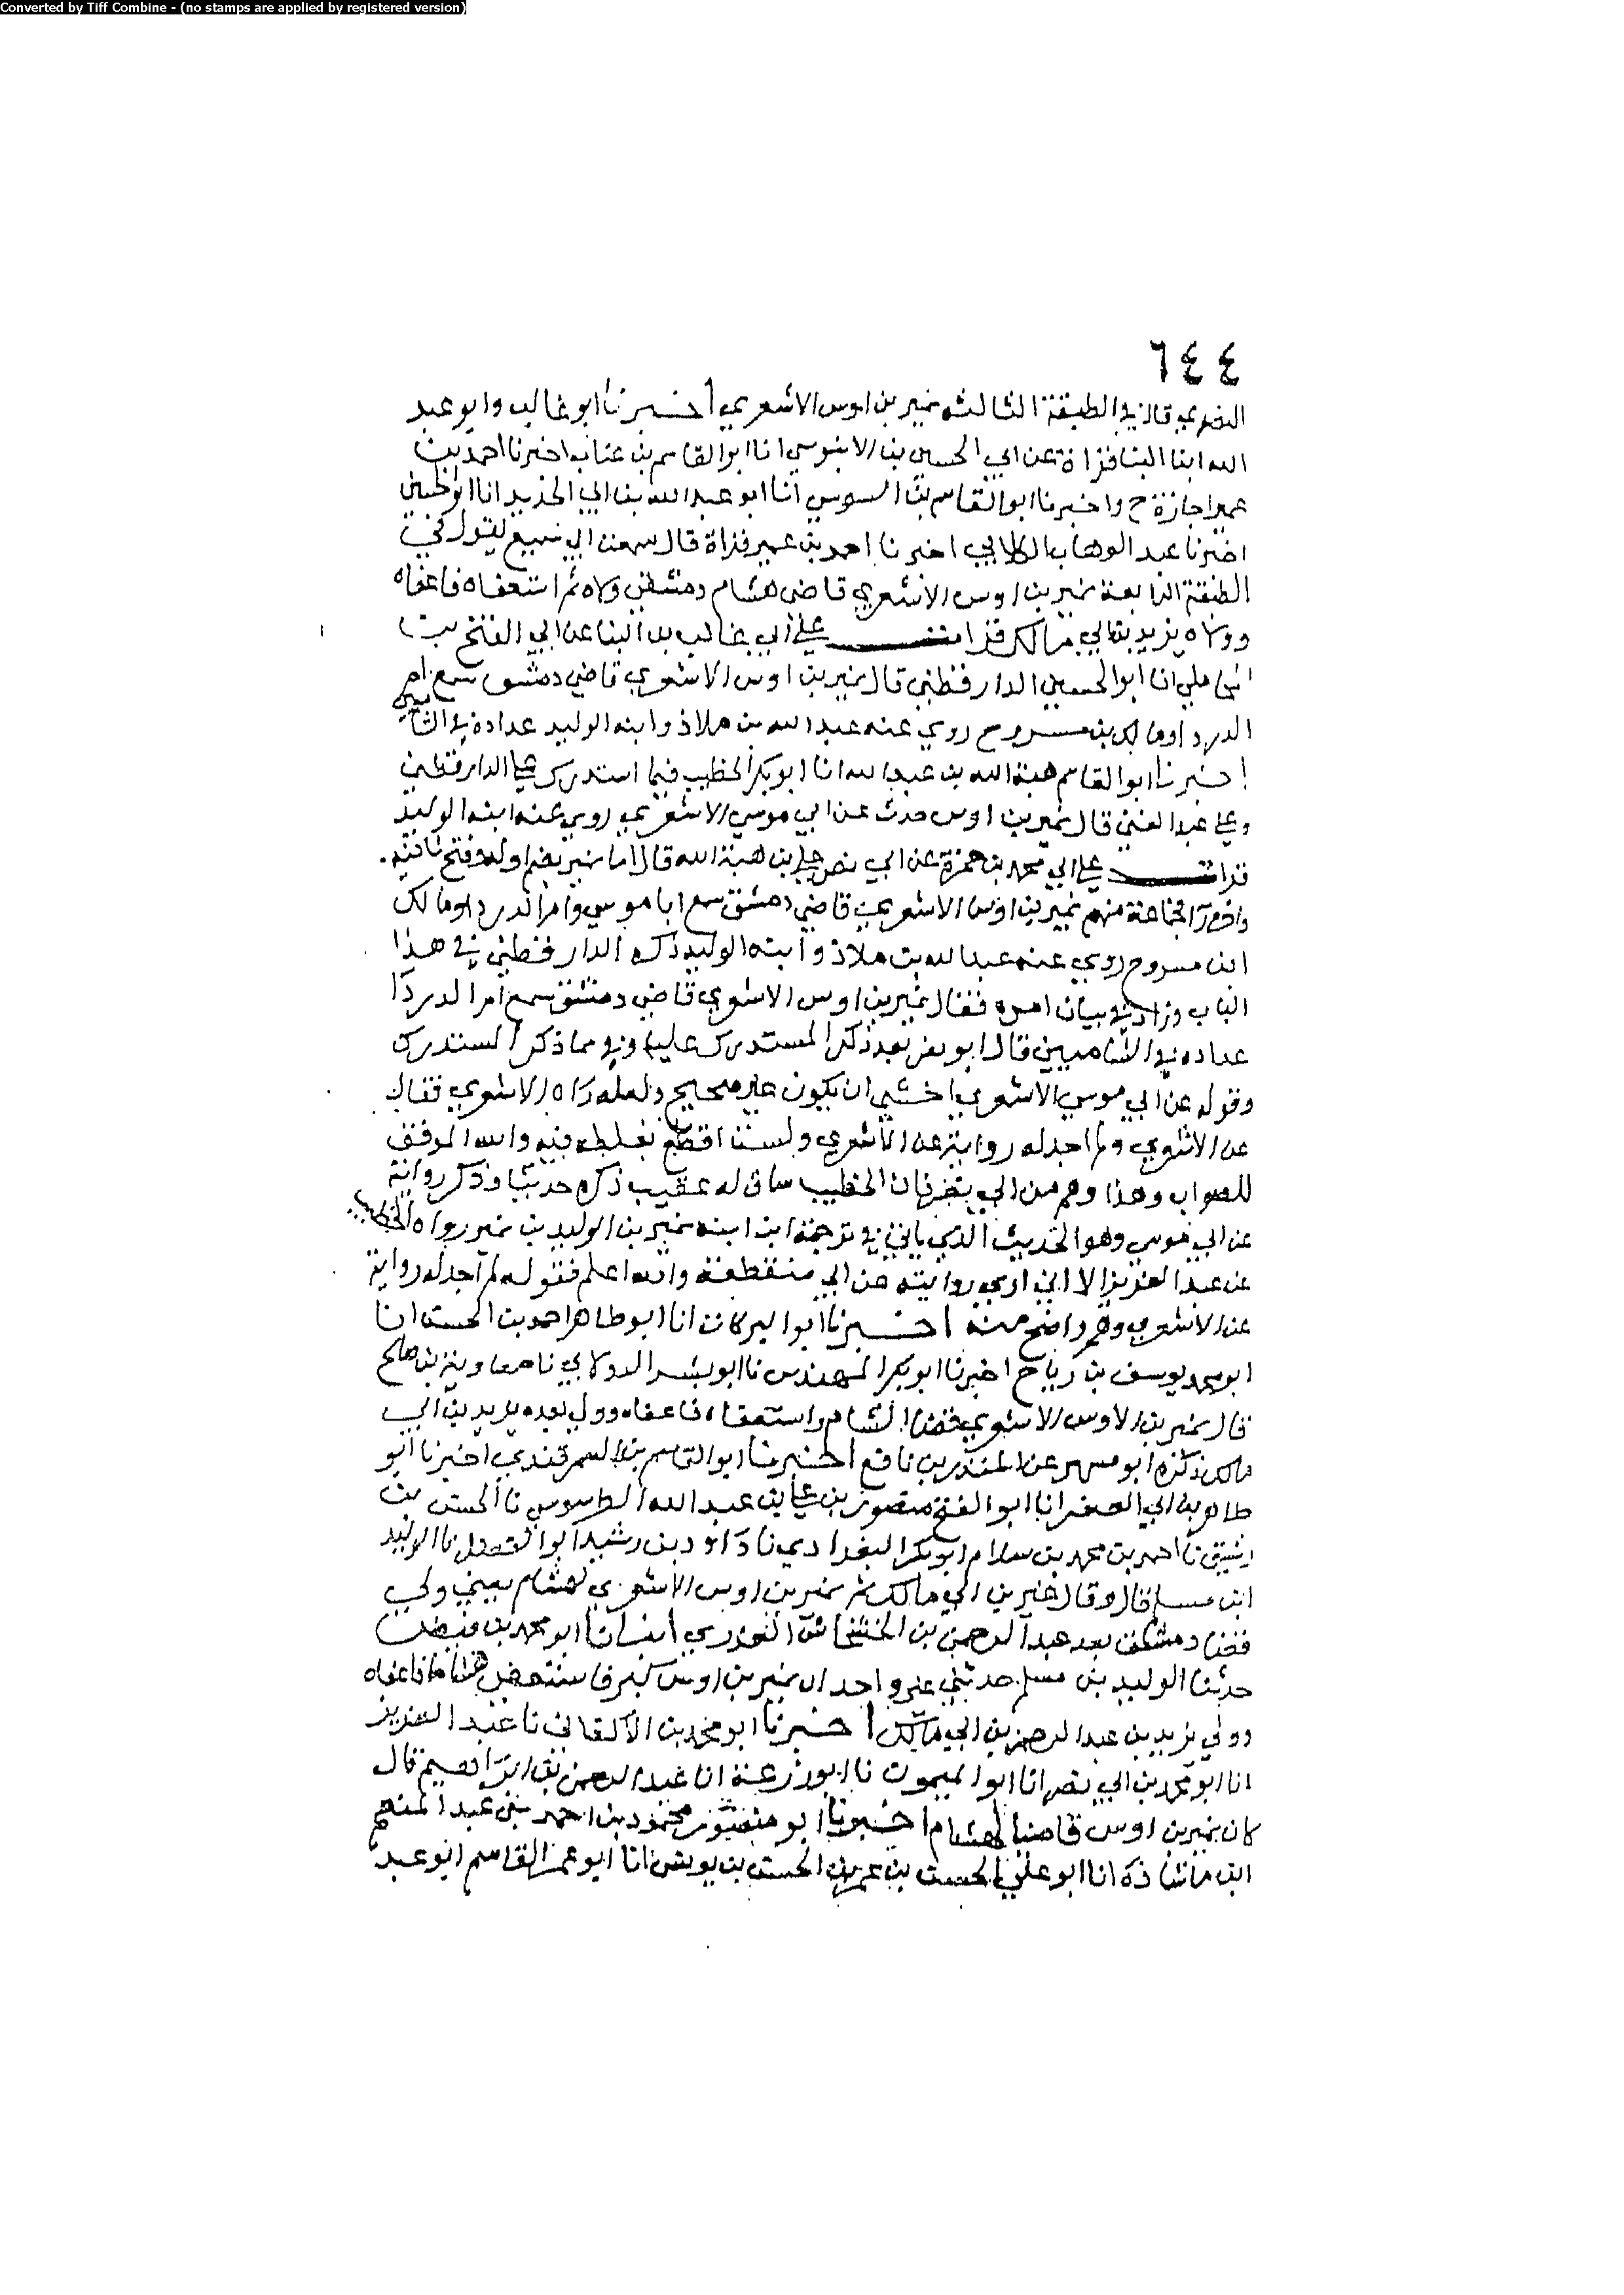 Converted by Tiff Combine - (no stamps are applied by registered version)
٦٤٤
قال في الطبقة الثالثة نمير بن اوس الاشعري اخبرنا ابو غالب وابو عبد
الله ابنا البنا قراة عن ابي الحسين بن الابنوسي انا ابو القاسم بن عتاب اخبرنا احمد بن
عمير اجازة ح واخبرنا ابو القاسم بن السوسي انا ابو عبد الله بن ابي الحديد انا ابو الحسن
اخبرنا عبد الوهاب الكلابي اخبرنا احمد بن عمير قراة قال سمعت ابن سميع يقول في
الطبقة الرابعة نمير بن اوس الاشعري قاضي هشام دمشقي ولاه ثم استعفاه فاعفاه
وولاه يزيد بن ابي مالك قرات على ابي غالب بن البنا عن ابي الفتح بن
المحاملي انا ابو الحسين الدارقطني قال نمير بن اوس الاشعري قاضي دمشق سمع ام
الدردا ومالك بن مسروح روي عنه عبد الله بن ملاذ وابنه الوليد عداده في الشاميين
اخبرنا ابو القاسم هبة الله بن عبد الله انا ابو بكر الخطيب فيما استدرك على الدارقطني
وعلى عبد الغني قال نمير بن اوس حدث عن ابي موسي الاشعري روي عنه ابنه الوليد
قرات على ابي محمد بن حمزة عن ابي نصر علي بن هبة الله قال اما نمير بضم اوله وفتح ثانيه
جماعة منهم نمير بن اوس الاشعري قاضي دمشق سمع ابا موسي وام الدردا ومالك
ابن مسروح روي عنه عبد الله بن ملاذ وابنه الوليد ذكره الدارقطني في هذا
الباب وزاد في بيان امره فقال نمير بن اوس الاشعري قاضي دمشق سمع ام الدردا
عداده في الشاميين قال ابو نصر بعد ذكر المستدرك عليه وفي ما ذكر المستدرك
وقوله عن ابي موسي الاشعري اخشي ان يكون غير صحيح ولعله راه الاشعري فقال
عن الاشعري ولم اجد له رواية عن الاشعري ولست اقطع بغلطه فيه والله الموفق
للصواب وهذا وهم من ابي نصر فان الخطيب ساق له عقيب ذكره حديثا وذكر رواية
عن ابي موسي وهو الحديث الذي ياتي في ترجمة ابن ابنه نمير بن الوليد بن نمير رواه الخطيب
عن عبد العزيز الا اني اري روايته عن ابي منقطعة والله اعلم فقوله لم اجد له رواية
عن الاشعري وهم واضح منه اخبرنا ابو البركات انا ابو طاهر احمد بن الحسن انا
ابو محمد يوسف بن رباح اخبرنا ابو بكر المهندس نا ابو بشر الدولابي نا معاوية بن صالح
قال نمير بن الاوس الاشعري قضا الشام واستعفاه فاعفاه وولي بعده يزيد بن ابي
مالك ذكره ابو مسهر عن المنذر بن نافع اخبرنا ابو القاسم بن السمرقندي اخبرنا ابو
طاهر بن ابي الصقر انا ابو الفتح منصور بن علي بن عبد الله الطرسوسي نا الحسن بن
رشيق نا احمد بن محمد بن سلام ابو بكر البغدادي نا داود بن رشيد ابو الفضل نا الوليد
ابن مسلم قال وقال ابن ابي مالك ثم نمير بن اوس الاشعري لهشام يعني ولي
قضا دمشق بعد عبد الرحمن بن الخشخاش العذري انبانا ابو محمد بن
حدثنا الوليد بن مسلم حدثني غير واحد ان نمير بن اوس كبر فاستعفي هشاما فاعفاه
وولي يزيد بن عبد الرحمن بن ابي مالك اخبرنا ابو محمد بن الاكفاني نا عبد العزيز
انا ابو محمد بن ابي نصر انا ابو الميمون نا ابو زرعة انا عبد الرحمن بن ابراهيم قال
كان نمير بن اوس قاضيا لهشام اخبرنا ابو منصور محمود بن احمد بن عبد المنعم
ابن ماشاذه انا ابو علي الحسن بن عمر بن الحسن بن يونس انا ابو عمر القاسم ابو عبد